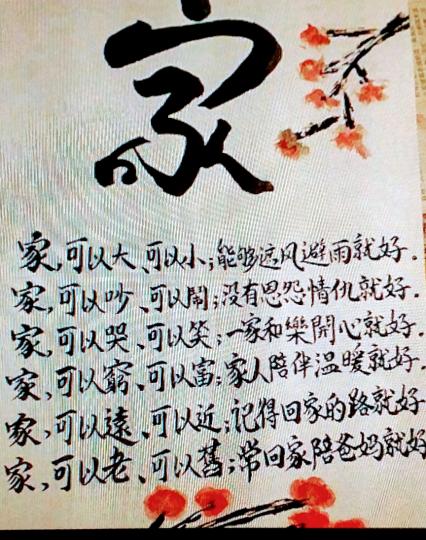 家
家,可以大、可以小;能够遮风避雨就好.
家,可以吵、可以鬧;没有恩怨情仇就好.
家,可以哭、可以笑;一家和樂開心就好.
家,可以窮、可以富;家人陪伴温暖就好.
家,可以遠、可以近;记得回家的路就好
家,可以老、可以舊;常回家陪爸妈就好